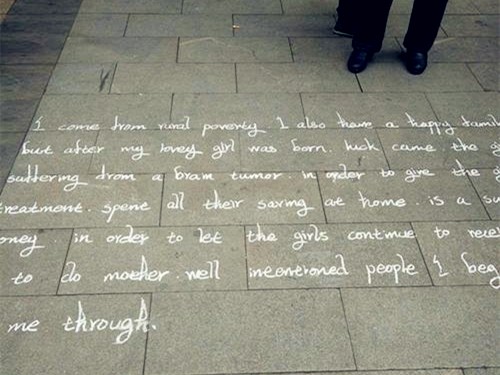 I come from rural poverty I also have a happy famil
but after my lovey girl was born. luck came. the g
suffering from a bram tumor. in order to give the g
treatment. spent all their saving at home. is a su
oney. in order to let the girls continue to recei
to do moether. well intentioned people I beg
me through.